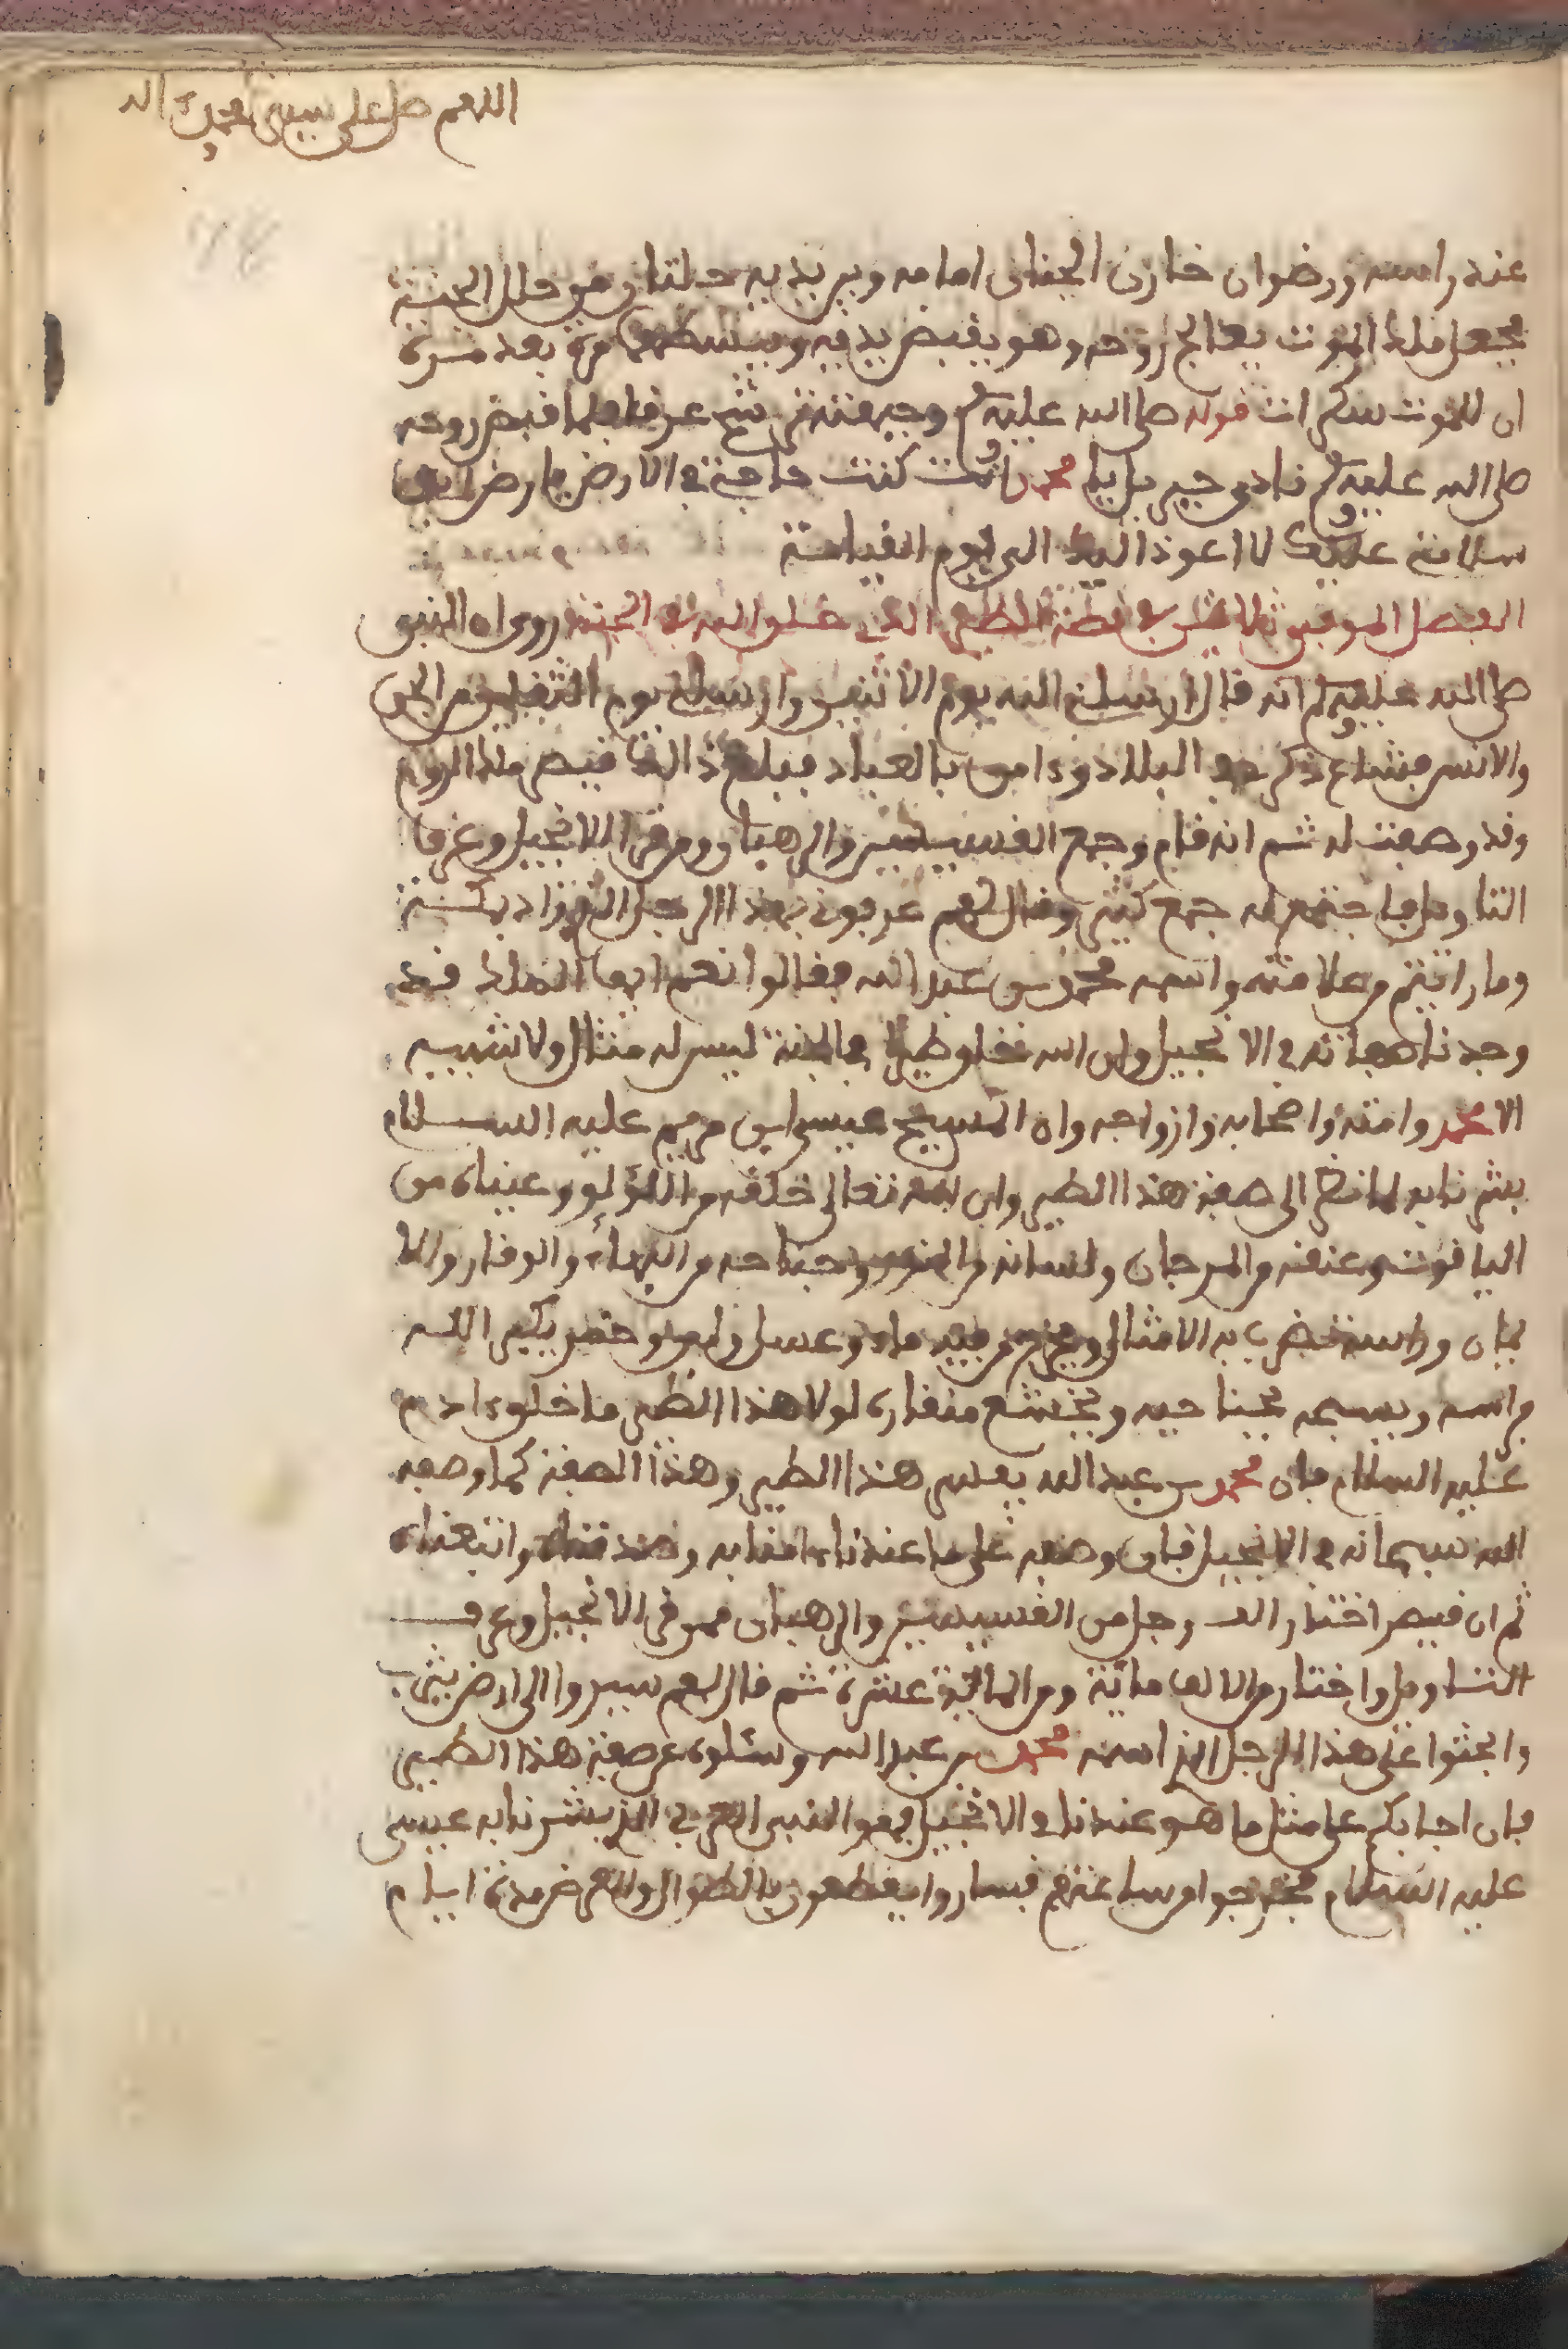 اللهم صل على سيدنا محمد واله
عند راسه ورضوان خازن الجنان امامه وبين يديه حلتان من حلل الجنة
فجعل ملك الموت يعالج روحه وهو يقبض يديه ويبسطهما مرة بعد مرة
ان للموت سكرات قوله صلى الله عليه وسلم عرقا فلما قبض روحه
صلى الله عليه وسلم نادى جبريل يا محمد انت كنت حاجتي في الارض يا ارض
سلامي عليك لا اعود اليك الى يوم القيامة
الفصل الموفي ثلاثين في قصة الطير الذي خلق الله في الجنة روي ان النبي
صلى الله عليه وسلم انه قال ارسلني الله يوم الاثنين وارسلني يوم الثقلين من الجن
والانس فشاع ذكره في البلاد وءامن بالعباد فبلغ ذالك قيصر ملك الروم
وقد وصفت له ثم انه قام وجمع القسيسين والرهبان ومن قرا الانجيل وعرف
التاويل فاجتمع له جمع كثير وقال لهم عرفوني بهذا الرجل الذي زاد بمكة
وما رايتم من علامته واسمه محمد بن عبد الله فقالوا نعم ايها الملك قد
وجدنا صفاته في الانجيل وان الله خلق طيرا في الجنة ليس له مثال ولا شبيه
الا محمد وامته واصحابه وازواجه وان المسيح عيسى ابن مريم عليه السلام
بشرنا به لما نظر الى صفة هذا الطير وان الله تعالى خلقه من اللؤلؤ وعيناه من
الياقوت وعنقه من المرجان ولسانه من النور وجناحه من البهاء والوقار والا
يمان وراسه تضرب به الامثال ويخرج من فيه ماء وعسل ولبن وخمر يكبر الله
براسه ويسبحه بجناحيه ويخشع منقاره لولا هذا الطير ما خلق ءادم
عليه السلام فان محمد بن عبد الله يعلمه هذا الطير وهذا الصفة كما وصفه
الله سبحانه في الانجيل فان وصفه على ما عندنا ءامنا به وصدقناه واتبعناه
ثم ان قيصر اختار الف رجل من القسيسين والرهبان ممن قرا الانجيل وعرف
التاويل واختار من الالف مائة ومن المائة عشرة ثم قال لهم سيروا الى ارض يثرب
وابحثوا على هذا الرجل الذي اسمه محمد بن عبد الله وسئلوه عن صفة هذا الطير
فان اجابكم على مثل ما هو عندنا في الانجيل فهو النبي العربي الذي بشرنا به عيسى
عليه السلام فخرجوا من ساعتهم فساروا يقطعون بالطول والعرض مدة ايام